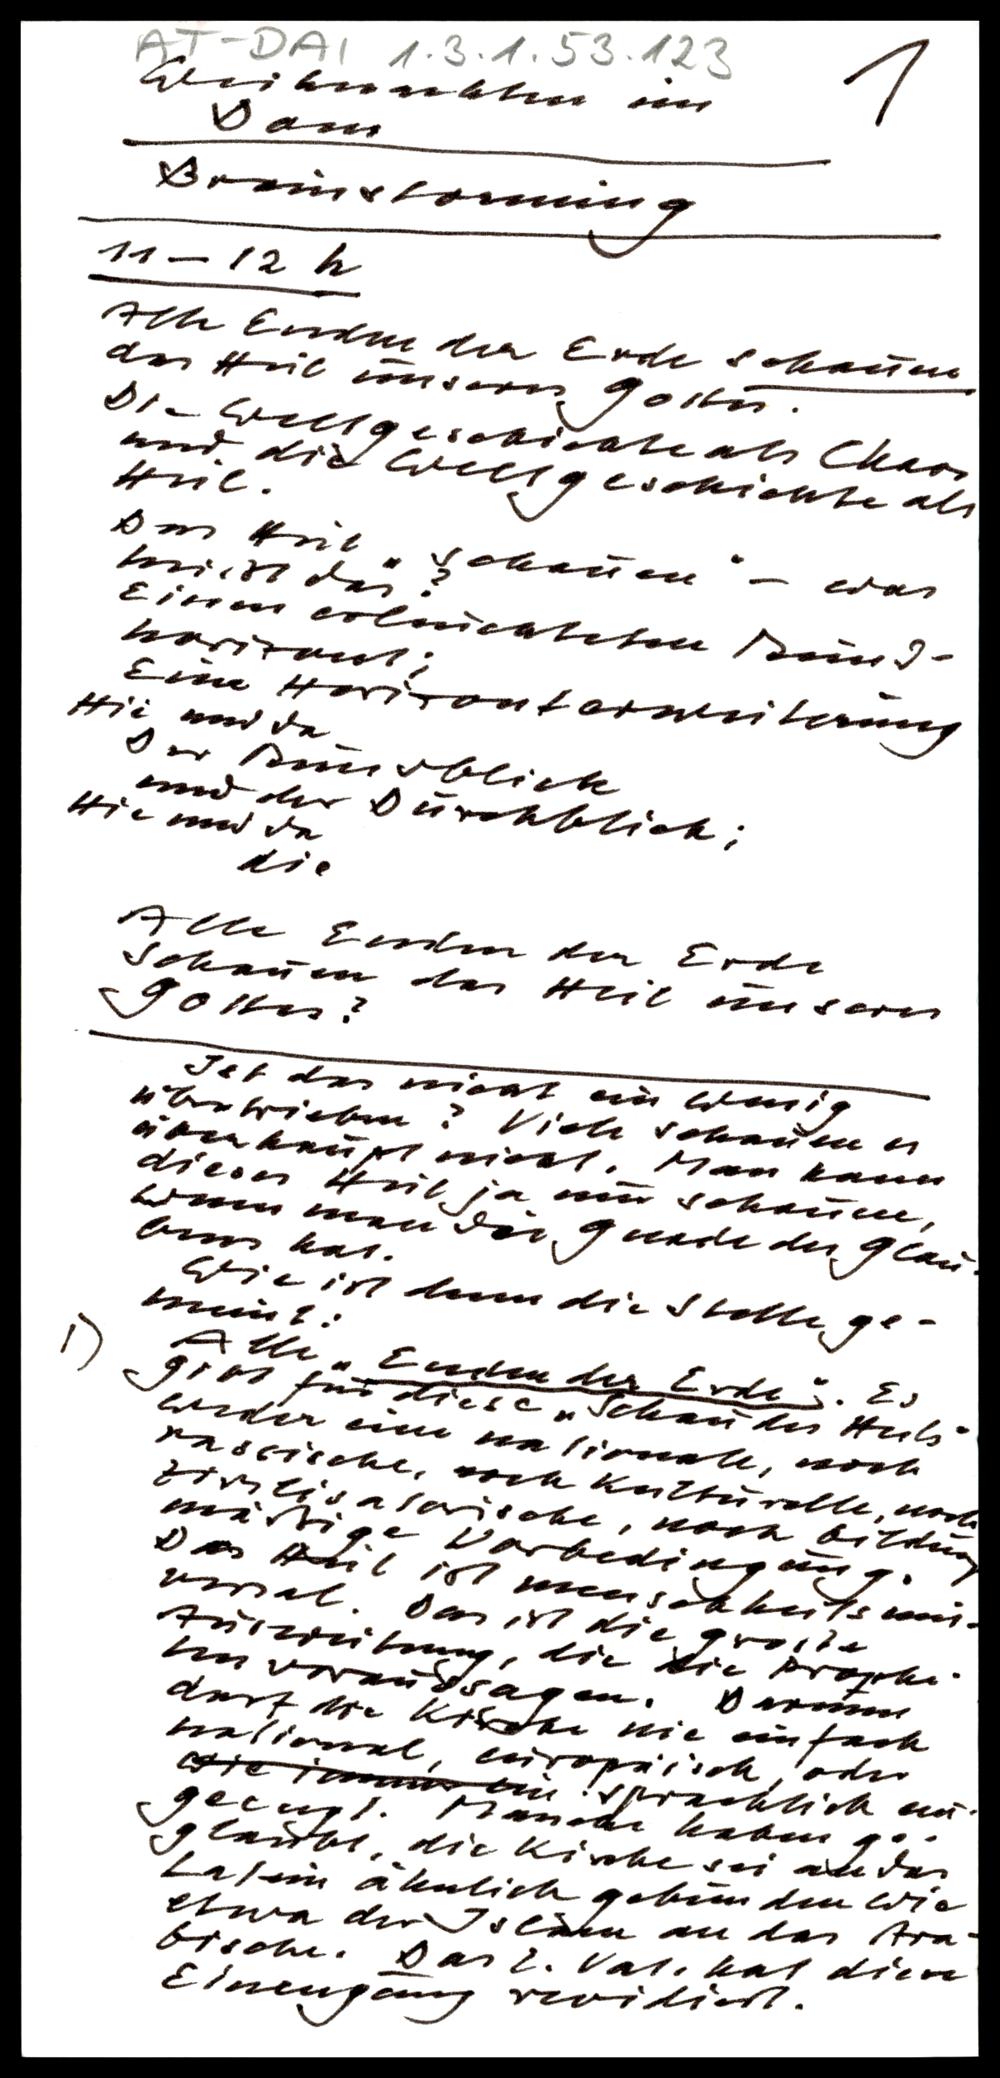 AT-DAI 1.3.1.53.123
1
Weihnachten im
Dom
Brainstorming
11-12 h
Alle Enden der Erde schauen
das Heil unseres Gottes.
Die Weltgeschichte als Chaos
und die Weltgeschichte als
Heil.
Das Heil „schauen“ - was
heisst das?
Einen erleuchteten Rund-
horizont;
Eine Horizonterweiterung
Hie und da
Der Rundblick
und der Durchblick;
Hie und da
die
Alle Enden der Erde
schauen das Heil unseres
Gottes?
Ist das nicht ein wenig
übertrieben? Viele schauen es
überhaupt nicht. Man kann
dieses Heil ja nur schauen,
wenn man die Gnade des Glau-
bens hat.
Wie ist denn die Stelle ge-
meint:
1) Alle „Enden der Erde“. Es
gibt für diese „Schau des Heils“
weder eine nationale, noch
rassische, noch kulturelle, noch
zivilisatorische, noch bildungs
mäßige Vorbedingung.
Das Heil ist menschheitsuni-
versal. Das ist die große
Ausweitung, die die Prophe-
ten voraussagen. Darum
darf die Kirche nie einfach
national, europäisch, oder
wie immer ein sprachlich ein-
geengt. Manche haben ge-
glaubt, die Kirche sei an das
Latein ähnlich gebunden wie
etwa der Islam an das Ara-
bische. Das 2. Vat. hat diese
Einengung revidiert.